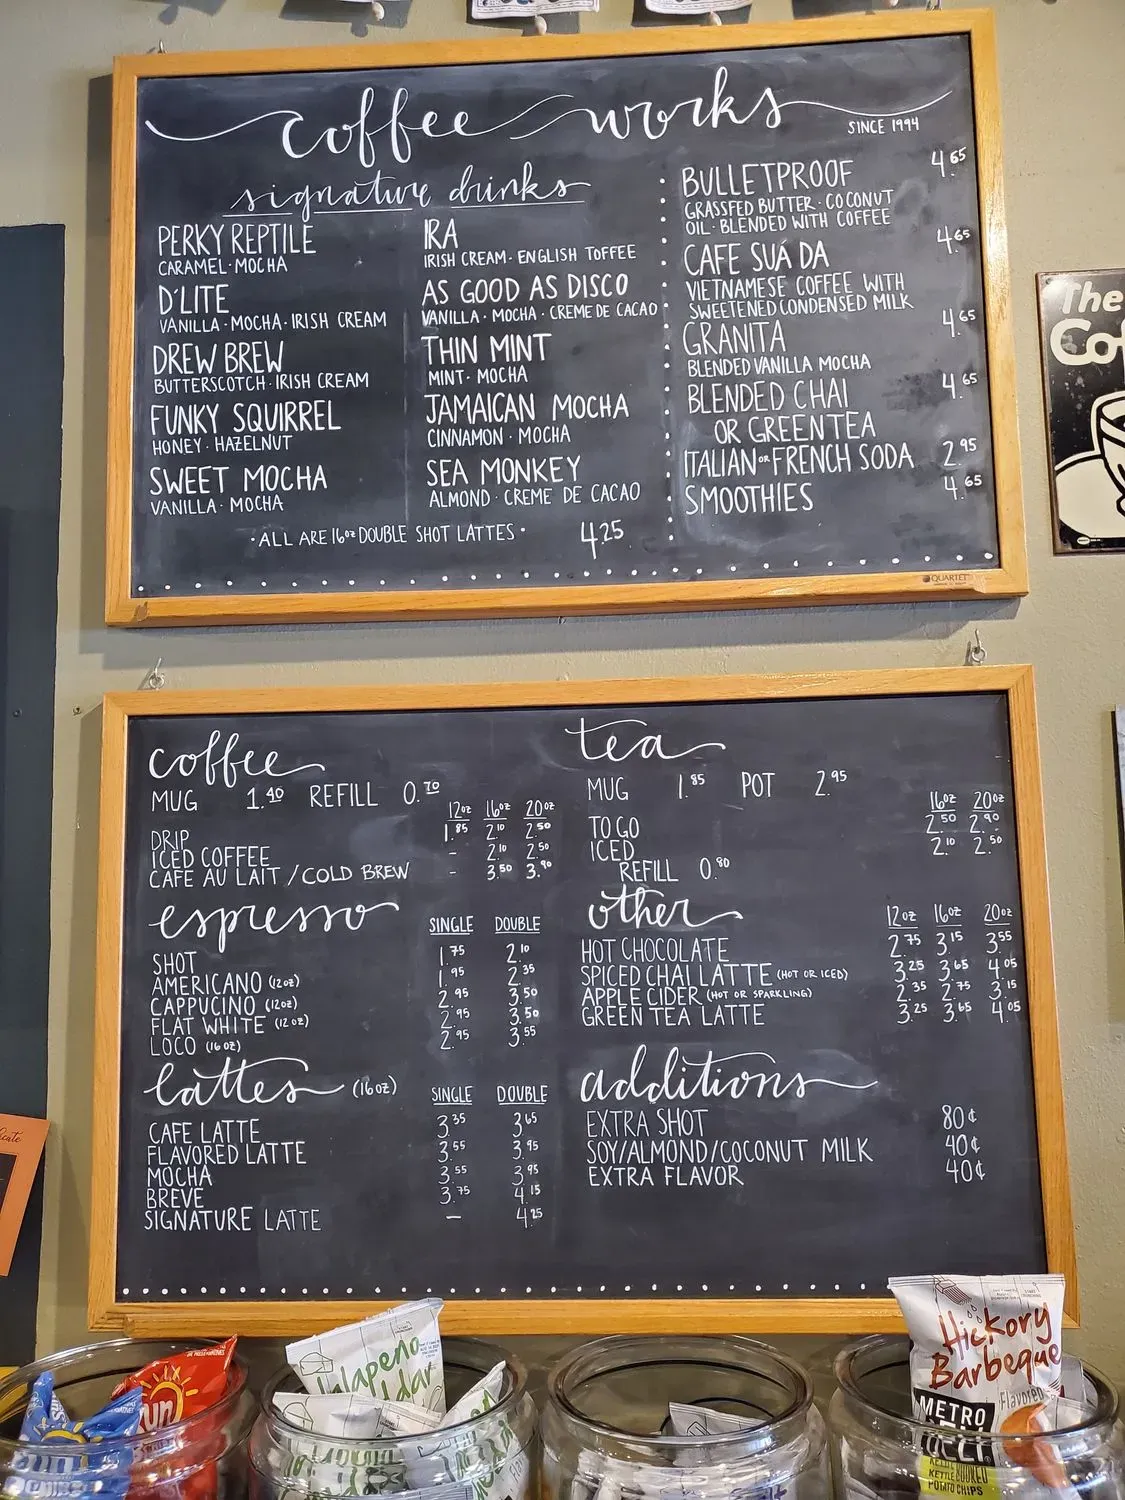 coffee works
SINCE 1994
signature drinks
PERKY REPTILE
CARAMEL · MOCHA
D'LITE
VANILLA · MOCHA · IRISH CREAM
DREW BREW
BUTTERSCOTCH · IRISH CREAM
FUNKY SQUIRREL
HONEY · HAZELNUT
SWEET MOCHA
VANILLA · MOCHA
IRA
IRISH CREAM · ENGLISH TOFFEE
AS GOOD AS DISCO
VANILLA · MOCHA · CREME DE CACAO
THIN MINT
MINT · MOCHA
JAMAICAN MOCHA
CINNAMON · MOCHA
SEA MONKEY
ALMOND · CREME DE CACAO
· ALL ARE 16oz DOUBLE SHOT LATTES · 4.25
BULLETPROOF 4.65
GRASSFED BUTTER · COCONUT
OIL · BLENDED WITH COFFEE
CAFE SUÁ DA 4.65
VIETNAMESE COFFEE WITH
SWEETENED CONDENSED MILK
GRANITA 4.65
BLENDED VANILLA MOCHA
BLENDED CHAI 4.65
OR GREEN TEA
ITALIAN OR FRENCH SODA 2.95
SMOOTHIES 4.65
QUARTET
The
Cof
coffee
MUG 1.40 REFILL 0.70
12oz 16oz 20oz
DRIP 1.85 2.10 2.50
ICED COFFEE - 2.10 2.50
CAFE AU LAIT / COLD BREW - 3.50 3.90
espresso SINGLE DOUBLE
SHOT 1.75 2.10
AMERICANO (12oz) 1.95 2.35
CAPPUCINO (12oz) 2.95 3.50
FLAT WHITE (12oz) 2.95 3.50
LOCO (16oz) 2.95 3.55
lattes (16oz) SINGLE DOUBLE
CAFE LATTE 3.35 3.65
FLAVORED LATTE 3.55 3.95
MOCHA 3.55 3.95
BREVE 3.75 4.15
SIGNATURE LATTE - 4.25
tea
MUG 1.85 POT 2.95
16oz 20oz
TO GO 2.50 2.90
ICED 2.10 2.50
REFILL 0.80
other 12oz 16oz 20oz
HOT CHOCOLATE 2.75 3.15 3.55
SPICED CHAI LATTE (HOT OR ICED) 3.25 3.65 4.05
APPLE CIDER (HOT OR SPARKLING) 2.35 2.75 3.15
GREEN TEA LATTE 3.25 3.65 4.05
additions
EXTRA SHOT 80¢
SOY/ALMOND/COCONUT MILK 40¢
EXTRA FLAVOR 40¢
Jalapeño
Hickory
Barbeque
Flavored
METRO
DELI
KETTLE COOKED
POTATO CHIPS